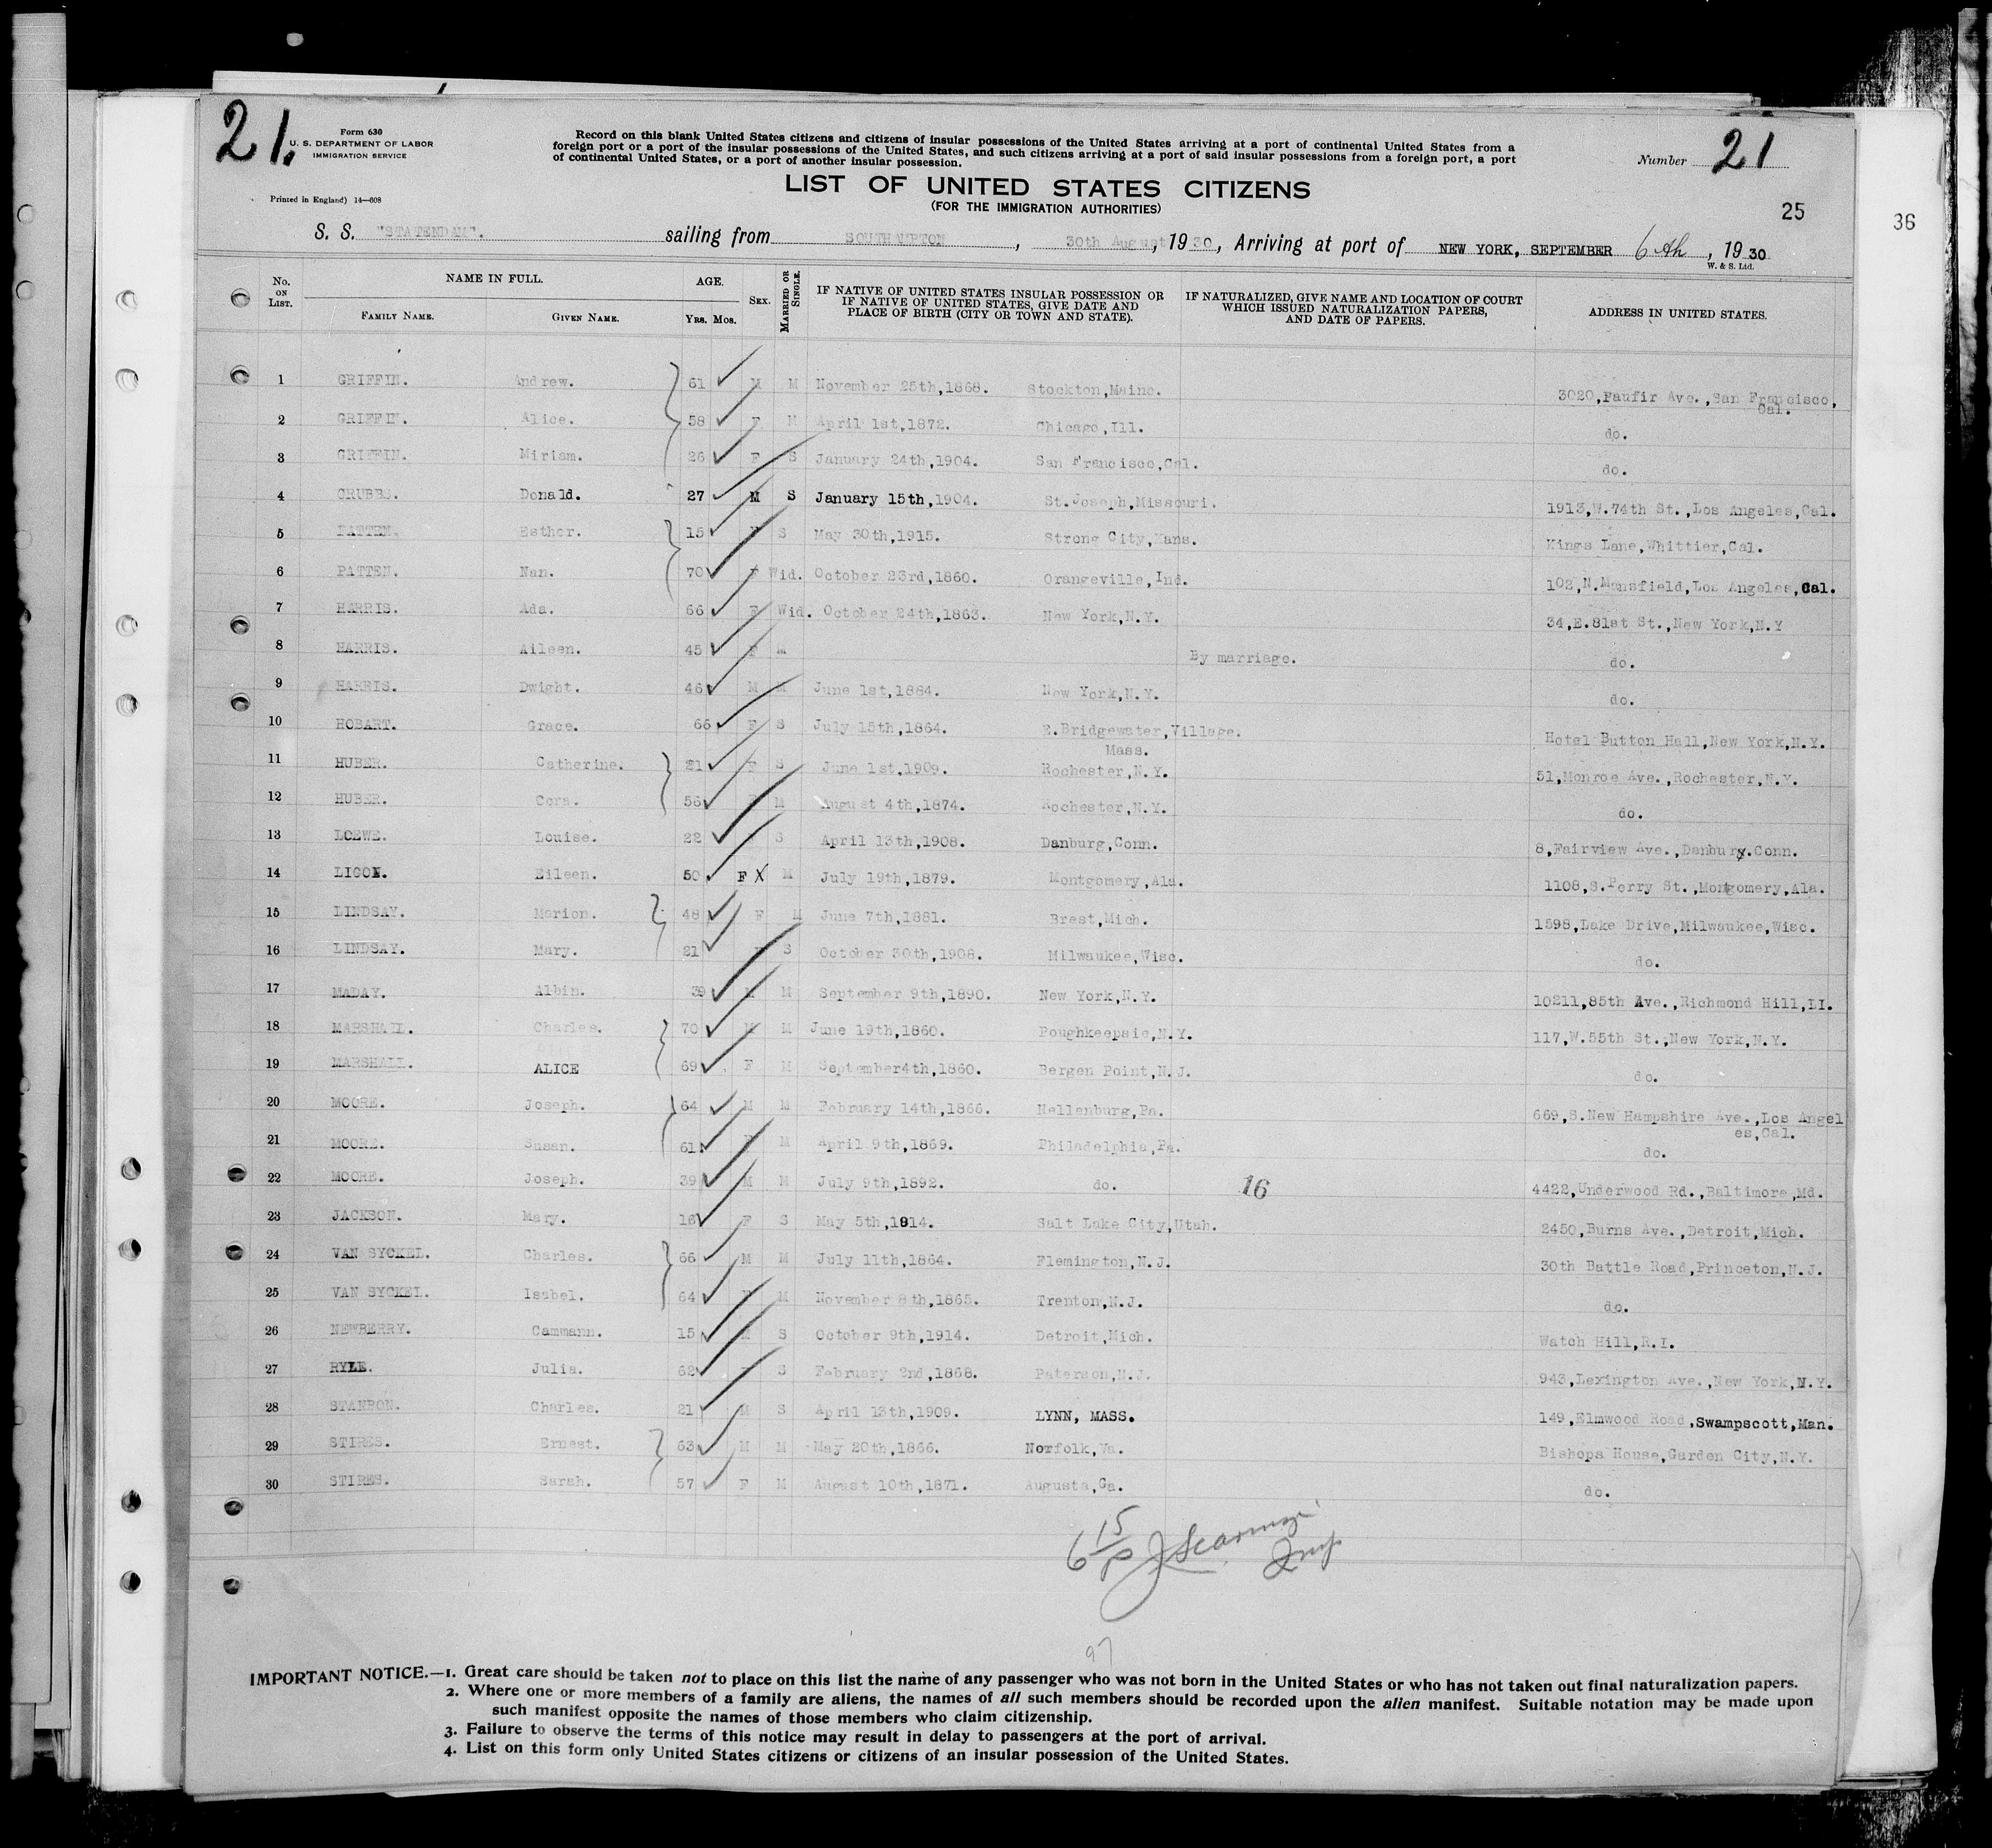 21.
Form 630
U. S. DEPARTMENT OF LABOR
IMMIGRATION SERVICE
Printed in England) 14—608
Record on this blank United States citizens and citizens of insular possessions of the United States arriving at a port of continental United States from a
foreign port or a port of the insular possessions of the United States, and such citizens arriving at a port of said insular possessions from a foreign port, a port
of continental United States, or a port of another insular possession.
Number 21
LIST OF UNITED STATES CITIZENS
(FOR THE IMMIGRATION AUTHORITIES)
25
36
S. S. "STATENDAM". sailing from SOUTHAMPTON, 30th August, 1930, Arriving at port of NEW YORK, SEPTEMBER 6th, 1930
W. & S. Ltd.
No. ON LIST. NAME IN FULL. FAMILY NAME. GIVEN NAME. AGE. YRS. MOS. SEX. MARRIED OR SINGLE. IF NATIVE OF UNITED STATES INSULAR POSSESSION OR IF NATIVE OF UNITED STATES, GIVE DATE AND PLACE OF BIRTH (CITY OR TOWN AND STATE). IF NATURALIZED, GIVE NAME AND LOCATION OF COURT WHICH ISSUED NATURALIZATION PAPERS, AND DATE OF PAPERS. ADDRESS IN UNITED STATES.
1 GRIFFIN. Andrew. 61 M M November 25th,1868. Stockton,Maine. 3020,Paufir Ave.,San Francisco, Cal.
2 GRIFFIN. Alice. 58 F M April 1st,1872. Chicago,Ill. do.
3 GRIFFIN. Miriam. 26 F S January 24th,1904. San Francisco,Cal. do.
4 CRUBBS. Donald. 27 M S January 15th,1904. St.Joseph,Missouri. 1913,W.74th St.,Los Angeles,Cal.
5 PATTEN. Esther. 15 S May 30th,1915. Strong City,Kans. Kings Lane,Whittier,Cal.
6 PATTEN. Nan. 70 F Wid. October 23rd,1860. Orangeville,Ind. 102,N.Mansfield,Los Angeles,Cal.
7 HARRIS. Ada. 66 F Wid. October 24th,1863. New York,N.Y. 34,E.81st St.,New York,N.Y
8 HARRIS. Aileen. 45 F M By marriage. do.
9 HARRIS. Dwight. 46 M M June 1st,1884. New York,N.Y. do.
10 HOBART. Grace. 66 F S July 15th,1864. E.Bridgewater,Village. Mass. Hotel Button Hall,New York,N.Y.
11 HUBER. Catherine. 21 F S June 1st,1909. Rochester,N.Y. 51,Monroe Ave.,Rochester,N.Y.
12 HUBER. Cora. 56 M August 4th,1874. Rochester,N.Y. do.
13 LOEWE. Louise. 22 S April 13th,1908. Danburg,Conn. 8,Fairview Ave.,Danbury.Conn.
14 LIGON. Eileen. 50 F X M July 19th,1879. Montgomery,Ala. 1108,S.Perry St.,Montgomery,Ala.
15 LINDSAY. Marion. 48 F M June 7th,1881. Brest,Mich. 1598,Lake Drive,Milwaukee,Wisc.
16 LINDSAY. Mary. 21 F S October 30th,1908. Milwaukee,Wisc. do.
17 MADAY. Albin. 39 M M September 9th,1890. New York,N.Y. 10211,85th Ave.,Richmond Hill,LI.
18 MARSHALL. Charles. 70 M M June 19th,1860. Poughkeepsie,N.Y. 117,W.55th St.,New York,N.Y.
19 MARSHALL. ALICE 69 F M September4th,1860. Bergen Point,N.J. do.
20 MOORE. Joseph. 64 M M February 14th,1866. Hellenburg,Pa. 669,S.New Hampshire Ave.,Los Angel es,Cal.
21 MOORE. Susan. 61 F M April 9th,1869. Philadelphia,Pa. do.
22 MOORE. Joseph. 39 M M July 9th,1892. do. 16 4422,Underwood Rd.,Baltimore,Md.
23 JACKSON. Mary. 16 F S May 5th,1914. Salt Lake City,Utah. 2450,Burns Ave.,Detroit,Mich.
24 VAN SYCKEL. Charles. 66 M M July 11th,1864. Flemington,N.J. 30th Battle Road,Princeton,N.J.
25 VAN SYCKEL. Isabel. 64 F M November 8th,1865. Trenton,N.J. do.
26 NEWBERRY. Cammann. 15 M S October 9th,1914. Detroit,Mich. Watch Hill,R.I.
27 RYLE. Julia. 62 S February 2nd,1868. Paterson,N.J. 943,Lexington Ave.,New York,N.Y.
28 STANBON. Charles. 21 M S April 13th,1909. LYNN, MASS. 149,Elmwood Road,Swampscott,Man.
29 STIRES. Ernest. 63 M M May 20th,1866. Norfolk,Va. Bishops House,Garden City,N.Y.
30 STIRES. Sarah. 57 F M August 10th,1871. Augusta,Ga. do.
6 15/P
97
IMPORTANT NOTICE.—1. Great care should be taken not to place on this list the name of any passenger who was not born in the United States or who has not taken out final naturalization papers.
2. Where one or more members of a family are aliens, the names of all such members should be recorded upon the alien manifest. Suitable notation may be made upon
such manifest opposite the names of those members who claim citizenship.
3. Failure to observe the terms of this notice may result in delay to passengers at the port of arrival.
4. List on this form only United States citizens or citizens of an insular possession of the United States.